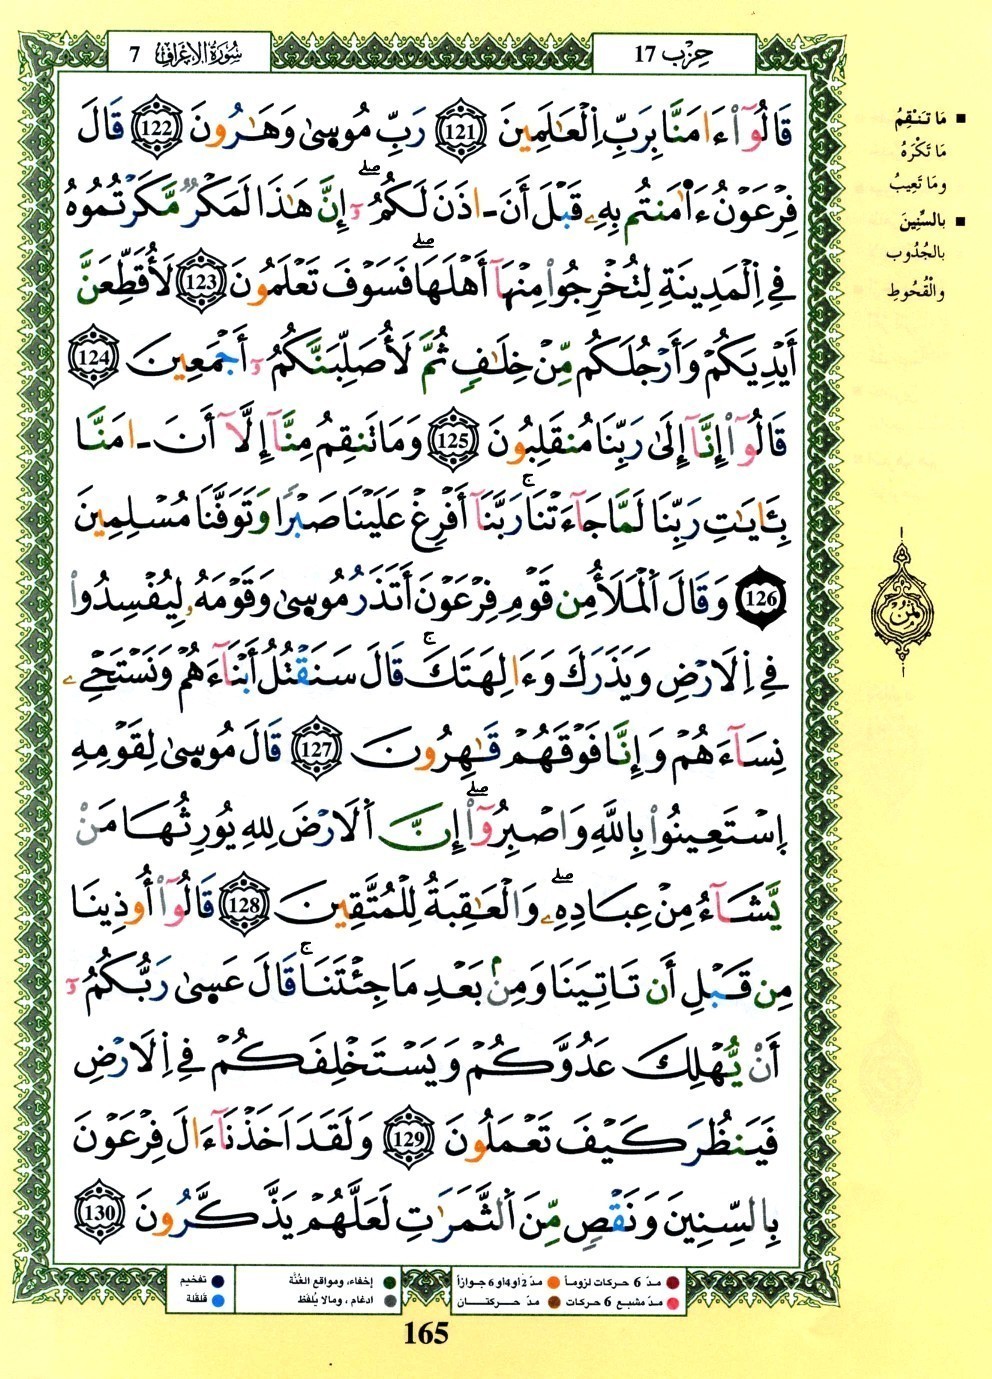 سُورَةُ الاِعْرَافِ 7
حِزْب 17
قَالُوٓاْ ءَامَنَّا بِرَبِّ اِ۬لْعَٰلَمِينَ 121 رَبِّ مُوسَىٰ وَهَٰرُونَ 122 قَالَ
فِرْعَوْنُ ءَا۬مَنتُم بِهِۦ قَبْلَ أَنَ ـ اذَنَ لَكُمُۥٓ إِنَّ هَٰذَا لَمَكْرٌ مَّكَرْتُمُوهُ
فِے اِ۬لْمَدِينَةِ لِتُخْرِجُواْ مِنْهَآ أَهْلَهَا فَسَوْفَ تَعْلَمُونَ 123 لَأُقَطِّعَنَّ
أَيْدِيَكُمْ وَأَرْجُلَكُم مِّنْ خِلَٰفٖ ثُمَّ لَأُصَلِّبَنَّكُمُۥٓ أَجْمَعِينَ 124
قَالُوٓاْ إِنَّآ إِلَىٰ رَبِّنَا مُنقَلِبُونَ 125 وَمَا تَنقِمُ مِنَّآ إِلَّآ أَنَ ـ امَنَّا
بِـَٔايَٰتِ رَبِّنَا لَمَّا جَآءَتْنَا رَبَّنَآ أَفْرِغْ عَلَيْنَا صَبْراٗ وَتَوَفَّنَا مُسْلِمِينَ
126 وَقَالَ اَ۬لْمَلَأُ مِن قَوْمِ فِرْعَوْنَ أَتَذَرُ مُوسَىٰ وَقَوْمَهُۥ لِيُفْسِدُواْ
فِے اِ۬لَارْضِ وَيَذَرَكَ وَءَالِهَتَكَ قَالَ سَنَقْتُلُ أَبْنَآءَهُمْ وَنَسْتَحْيِۦ
نِسَآءَهُمْ وَإِنَّا فَوْقَهُمْ قَٰهِرُونَ 127 قَالَ مُوسَىٰ لِقَوْمِهِ
اِ۪سْتَعِينُواْ بِاللَّهِ وَاصْبِرُوٓاْ إِنَّ اَ۬لَارْضَ لِلهِ يُورِثُهَا مَنْ
يَّشَآءُ مِنْ عِبَادِهِۦ وَالْعَٰقِبَةُ لِلْمُتَّقِينَ 128 قَالُوٓاْ أُوذِينَا
مِن قَبْلِ أَن تَاتِيَنَا وَمِنۢ بَعْدِ مَا جِئْتَنَا قَالَ عَسَىٰ رَبُّكُمُۥٓ
أَنْ يُّهْلِكَ عَدُوَّكُمْ وَيَسْتَخْلِفَكُمْ فِے اِ۬لَارْضِ
فَيَنظُرَ كَيْفَ تَعْمَلُونَ 129 وَلَقَدَ اَخَذْنَآ ءَالَ فِرْعَوْنَ
بِالسِّنِينَ وَنَقْصٖ مِّنَ اَ۬لثَّمَرَٰتِ لَعَلَّهُمْ يَذَّكَّرُونَ 130
■ مَا تَنْقِمُ
مَا تَكْرَهُ
وَمَا تَعِيبُ
■ بِالسِّنِينَ
بِالجُدُوبِ
وَالْقُحُوطِ
ثُمُن
مدّ 6 حركات لزوماً
مدّ 2 أو 4 أو 6 جوازاً
إخفاء، ومواقع الغُنَّة
تفخيم
مدّ مشبع 6 حركات
مدّ حركتان
ادغام ، وما لا يُلفَظ
قلقلة
165